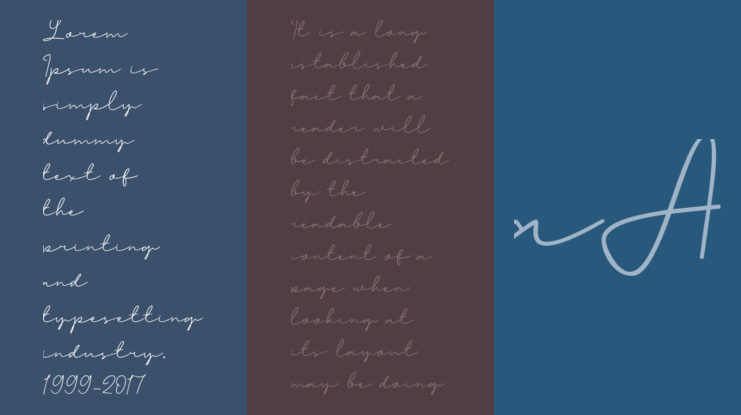 Lorem
Ipsum is
simply
dummy
text of
the
printing
and
typesetting
industry.
1999-2017
It is a long
established
fact that a
reader will
be distracted
by the
readable
content of a
page when
looking at
its layout
may be doing
A